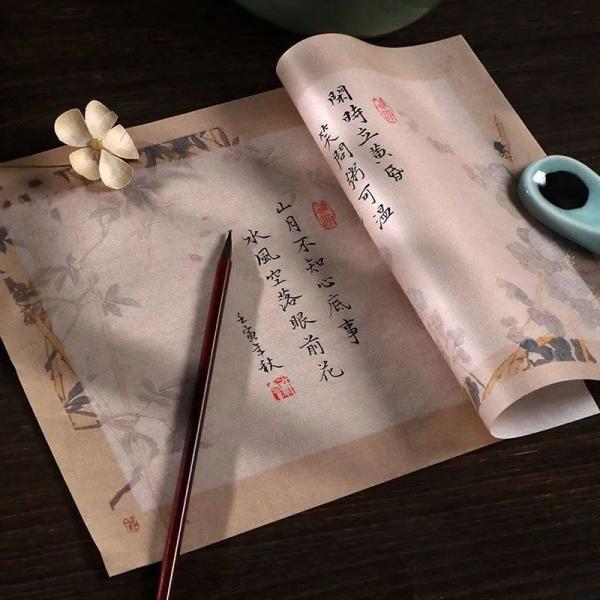 閑時立黄昏
笑問粥可溫
山月不知心底事
水風空落眼前花
壬寅年秋